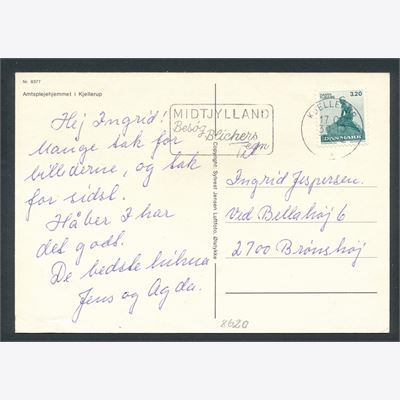 Nr. 8377
Amtsplejehjemmet i Kjellerup
MIDTJYLLAND
Besøg Blichers
egn
KJELLERUP
17
3.20
DANMARK
Hej Ingrid!
Mange tak for
billederne, og tak
for sidst.
Håber I har
det godt.
De bedste hilsna
Jens og Agda.
Til
Ingrid Jespersen.
Ved Bellahøj 6
2700 Brønshøj
Copyright: Sylvest Jensen Luftfoto, Ølstykke
8620